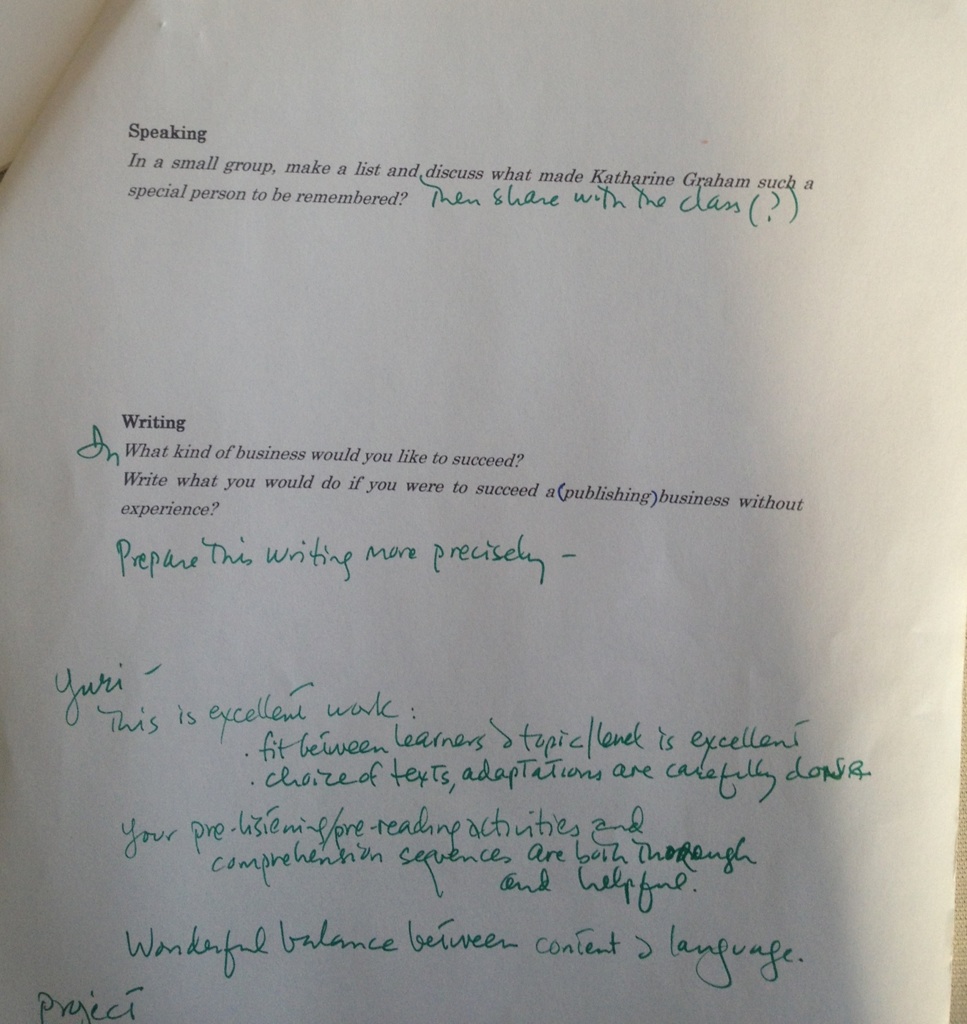 Speaking
In a small group, make a list and discuss what made Katharine Graham such a
special person to be remembered? Then share with the class (?)
Writing
In What kind of business would you like to succeed?
Write what you would do if you were to succeed a (publishing) business without
experience?
Prepare this writing more precisely –
Yuri –
This is excellent work:
. fit between learners & topic/level is excellent
. choice of texts, adaptations are carefully done
Your pre-listening/pre-reading activities and
comprehension sequences are both thorough
and helpful.
Wonderful balance between content & language.
Project